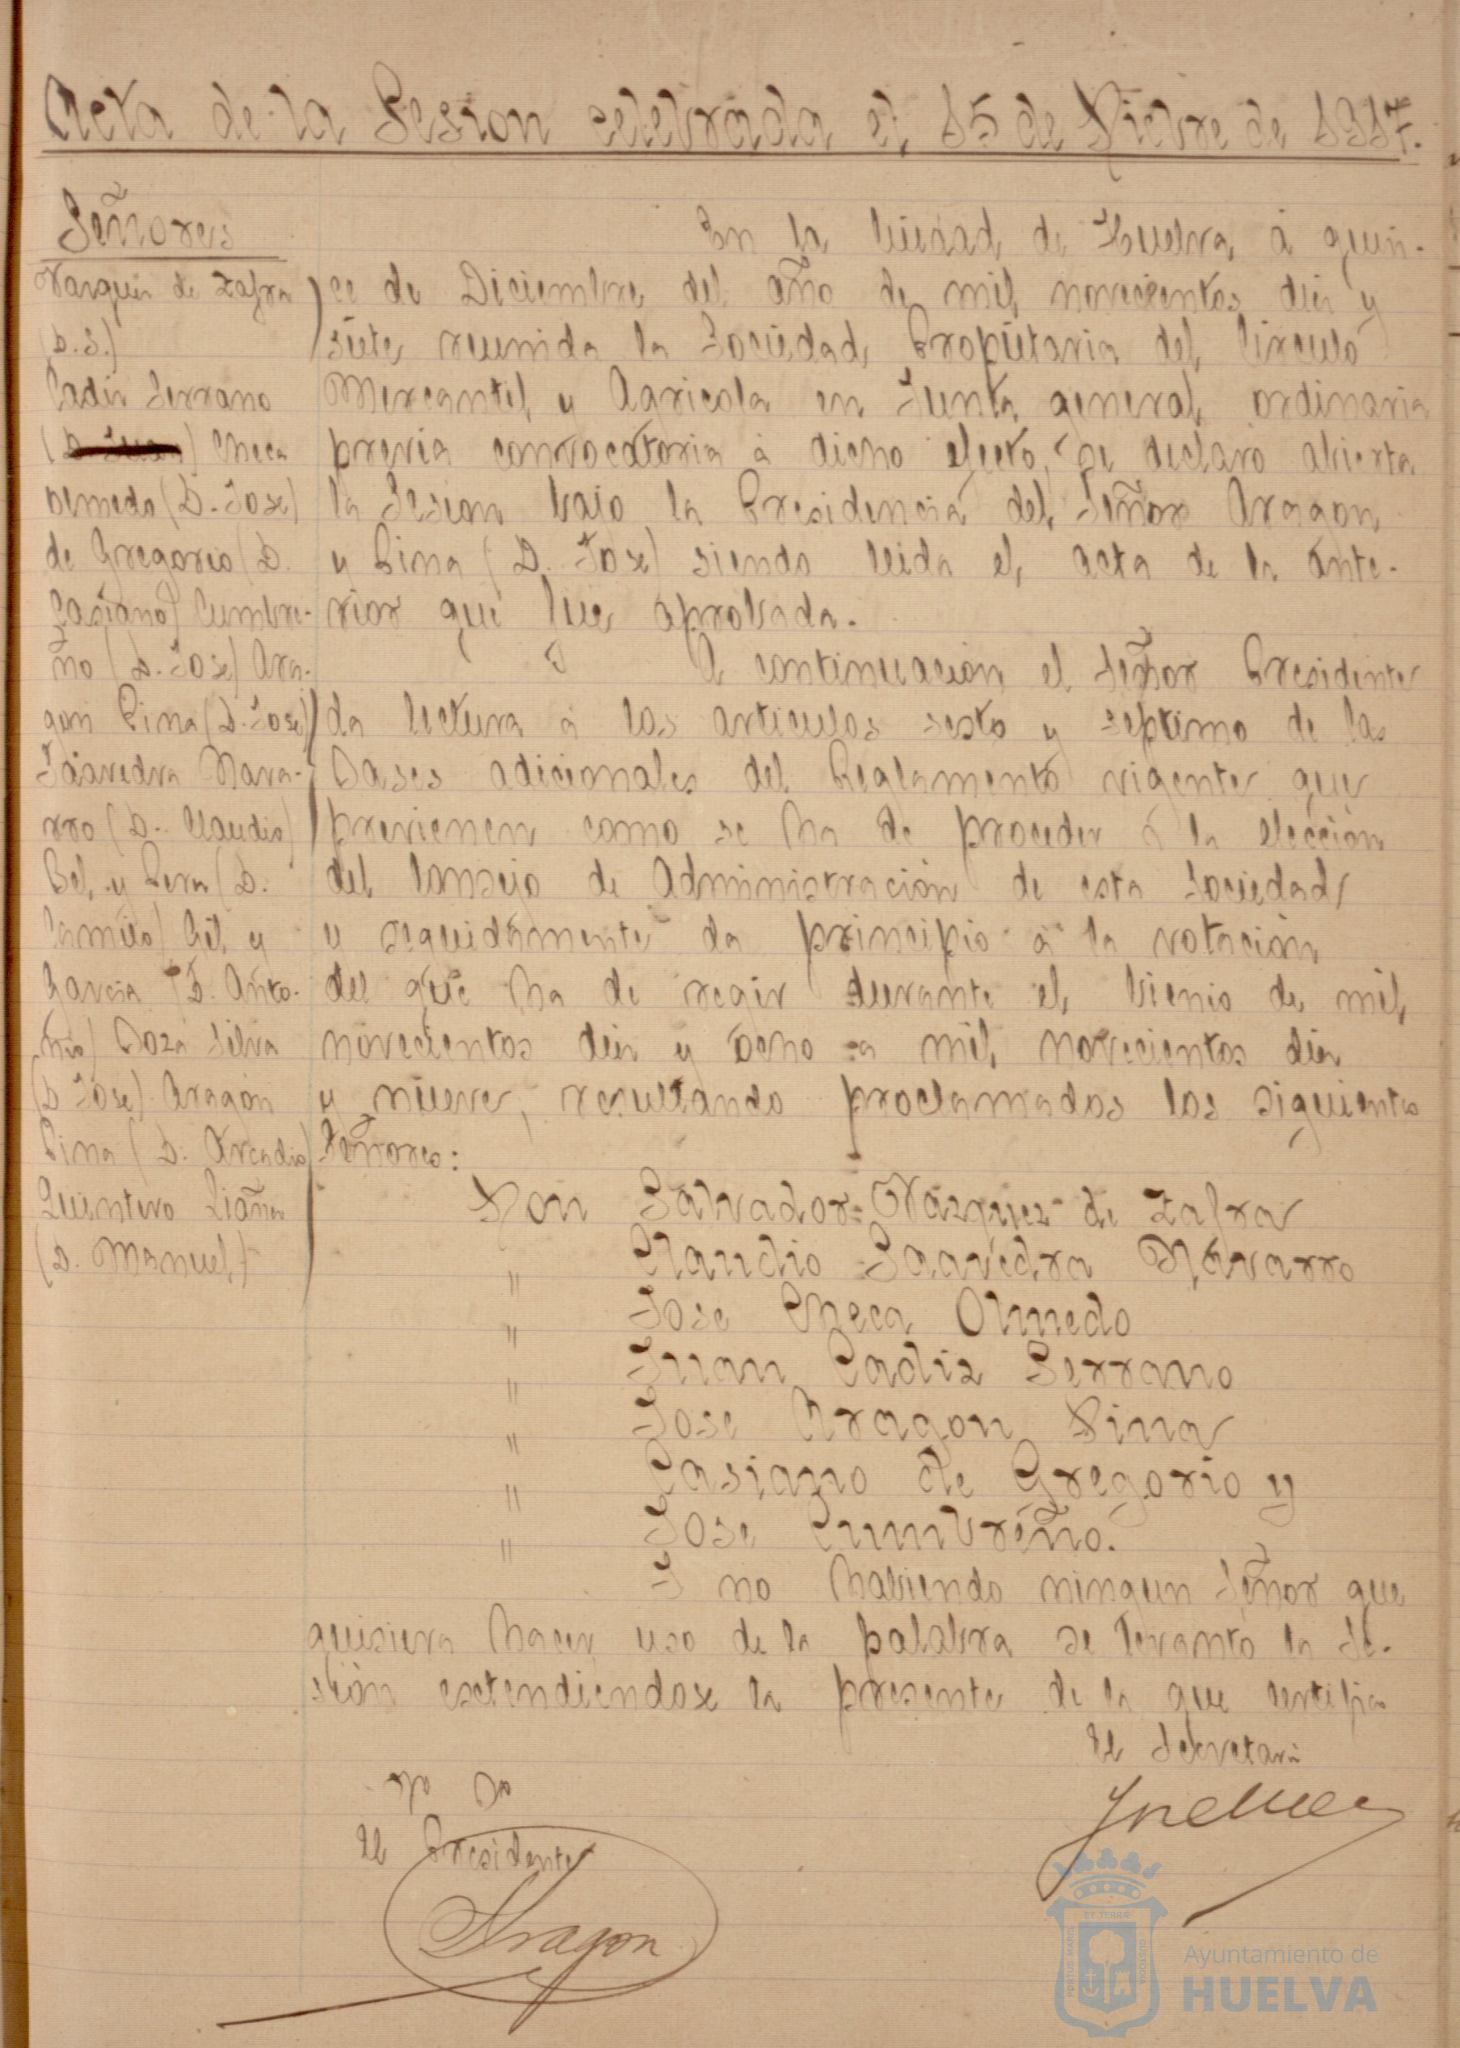 Acta de la Sesion celebrada el 15 de Dicbre de 1917.
Señores
Vazquez de Zafra
(D. S.)
Cadiz Serrano
(D. Juan) Checa
Olmedo (D. Jose)
de Gregorio (D.
Casiano) Cumbre-
ño (D. Jose) Ara-
gon Pina (D. Jose)
Saavedra Nava-
rro (D. Claudio)
Bel y Pera (D.
Camilo) Gil y
Garcia (D. Anto-
nio) Daza Silva
(D Jose) Aragon
Pina (D. Arcadio)
Quintero Liañez
(D. Manuel)
En la Ciudad de Huelva á quin-
ce de Diciembre del año de mil novecientos diez y
siete reunida la Sociedad Propietaria del Circulo
Mercantil y Agricola en Junta general ordinaria
previa convocatoria á dicho efecto, se declaró abierta
la Sesion bajo la Presidencia del Señor Aragon
y Pina (D. Jose) siendo leida el acta de la ante-
rior que fue aprobada.
A continuación el Señor Presidente
da lectura á los articulos sesto y septimo de las
Bases adicionales del Reglamento vigente que
previenen como se ha de proceder á la elección
del Consejo de Administración de esta Sociedad,
y seguidamente da principio á la votación
del que ha de regir durante el bienio de mil
novecientos diez y ocho a mil novecientos diez
y nueve, resultando proclamados los siguientes
Señores:
Don Salvador Vazquez de Zafra
" Claudio Saavedra Navarro
" Jose Checa Olmedo
" Juan Cadiz Serrano
" Jose Aragon Pina
" Casiano de Gregorio y
" Jose Cumbreño.
Y no habiendo ningun Señor que
quisiera hacer uso de la palabra se levantó la Se-
sión estendiendose la presente de la que certifico
El Secretario
Vº Bº
El Presidente
Aragon
PORTUS MARIS ET TERRÆ CUSTODIA
Ayuntamiento de
HUELVA